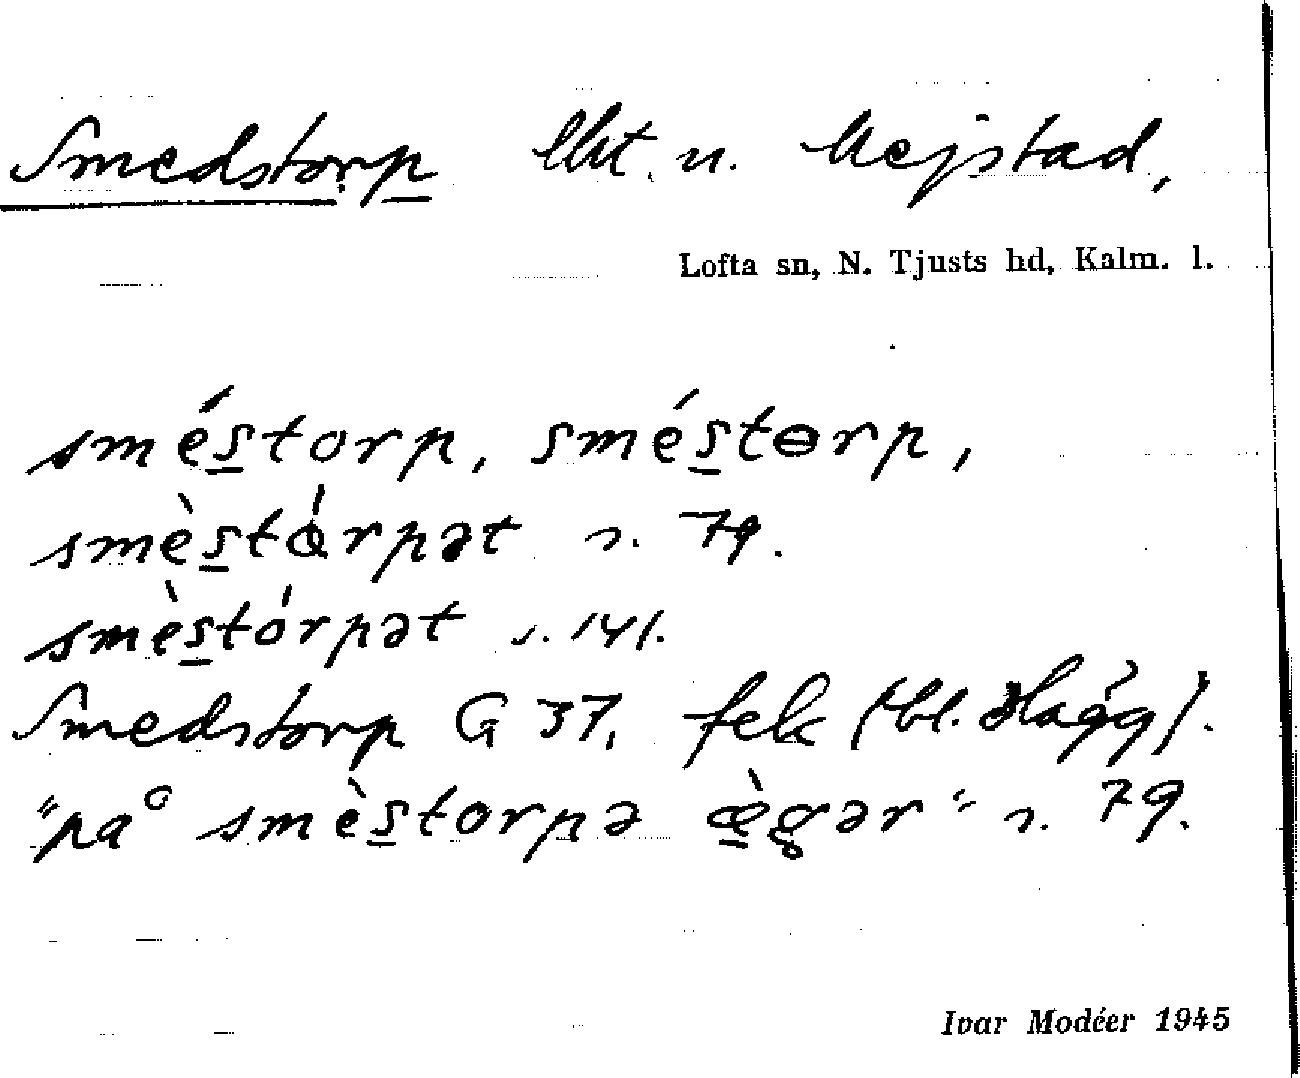 Smedstorp lht. u. Mejstad,
Lofta sn, N. Tjusts hd, Kalm. l.
sméstorp, sméstɵrp,
smèstɵ́rpət s. 79.
smèstórpət s. 141.
Smedstorp G 37, fek (bl.
"på smèstorpə æ̀gər" s. 79.
Ivar Modéer 1945